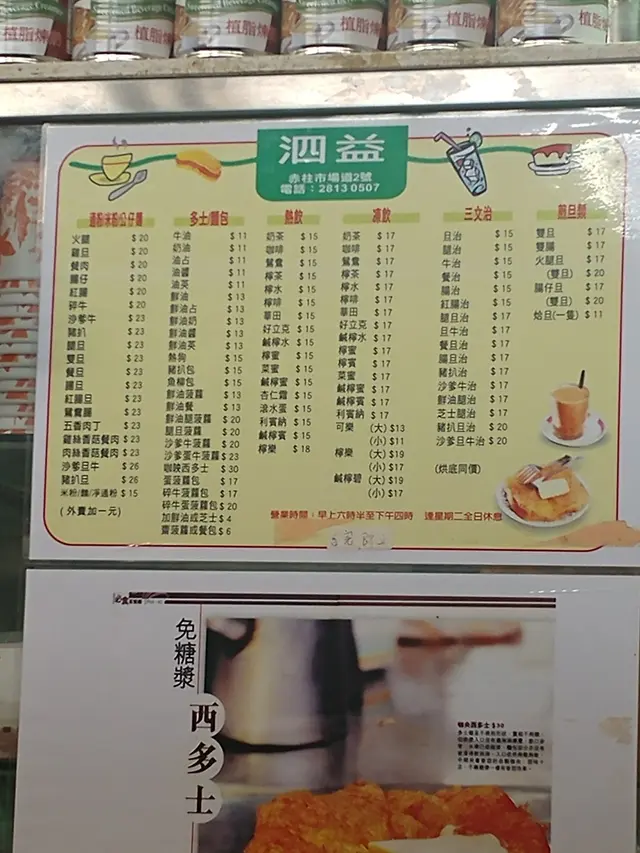 植脂
植脂
植脂
植脂
植脂
植脂
泗益
赤柱市場道2號
電話：2813 0507
通粉/米粉/公仔麵
火腿 $ 20
雞旦 $ 20
餐肉 $ 20
腸仔 $ 20
紅腸 $ 20
碎牛 $ 20
沙爹牛 $ 23
豬扒 $ 23
腿旦 $ 23
雙旦 $ 23
餐旦 $ 23
腸旦 $ 23
紅腸旦 $ 23
鴛鴦腸 $ 23
五香肉丁 $ 23
雞絲香菇餐肉 $ 23
肉絲香菇餐肉 $ 23
沙爹旦牛 $ 26
豬扒旦 $ 26
米粉/麵/淨通粉 $ 15
(外賣加一元)
多士/麵包
牛油 $ 11
奶油 $ 11
油占 $ 11
油醬 $ 11
油英 $ 11
鮮油 $ 13
鮮油占 $ 13
鮮油奶 $ 13
鮮油醬 $ 13
鮮油英 $ 13
熱狗 $ 15
豬扒包 $ 15
魚柳包 $ 15
鮮油菠蘿 $ 13
鮮油餐 $ 13
鮮油腿菠蘿 $ 20
腿旦菠蘿 $ 20
沙爹牛菠蘿 $ 20
沙爹蛋牛菠蘿 $ 23
咖央西多士 $ 30
蛋菠蘿包 $ 17
碎牛菠蘿包 $ 17
碎牛蛋菠蘿包 $ 20
加鮮油或芝士 $ 4
齋菠蘿或餐包 $ 6
熱飲
奶茶 $ 15
咖啡 $ 15
鴛鴦 $ 15
檸茶 $ 15
檸水 $ 15
檸啡 $ 15
華田 $ 15
好立克 $ 15
鹹檸水 $ 15
檸蜜 $ 15
菜蜜 $ 15
鹹檸蜜 $ 15
杏仁霜 $ 15
滾水蛋 $ 15
利賓納 $ 15
鹹檸賓 $ 15
檸樂 $ 18
凍飲
奶茶 $ 17
咖啡 $ 17
鴛鴦 $ 17
檸茶 $ 17
檸水 $ 17
檸啡 $ 17
華田 $ 17
好立克 $ 17
鹹檸水 $ 17
檸蜜 $ 17
檸賓 $ 17
菜蜜 $ 17
鹹檸蜜 $ 17
鹹檸賓 $ 17
利賓納 $ 17
可樂 (大) $13
(小) $11
檸樂 (大) $19
(小) $17
鹹檸碧 (大) $19
(小) $17
三文治
旦治 $ 15
腿治 $ 15
牛治 $ 15
餐治 $ 15
腸治 $ 15
紅腸治 $ 15
腿旦治 $ 17
旦牛治 $ 17
餐旦治 $ 17
腸旦治 $ 17
豬扒治 $ 17
沙爹牛治 $ 17
鮮油腿治 $ 17
芝士腿治 $ 17
豬扒旦治 $ 20
沙爹旦牛治 $ 20
(烘底同價)
煎旦類
雙旦 $ 17
雙腸 $ 17
火腿旦 $ 17
(雙旦) $ 20
腸仔旦 $ 17
(雙旦) $ 20
焓旦(一隻) $ 11
營業時間：早上六時半至下午四時 逢星期二全日休息
免糖漿
西多士
咖央西多士 $30